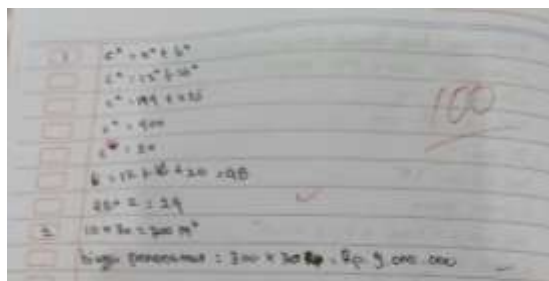 1 c² = a² + b²
c² = 12² + 16²
c² = 144 + 256
c² = 400
c = 20
100
k = 12 + 16 + 20 = 48
48 : 2 = 24
2 10 x 30 = 300 m²
biaya penanaman : 300 x 30 = Rp. 9.000.000